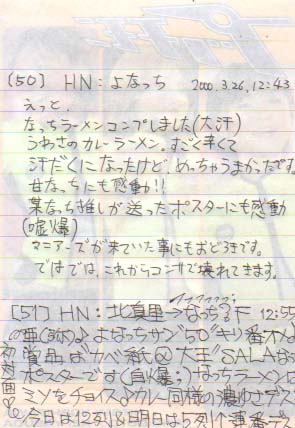 [50] HN：よなっち 2000.3.26.12:43
えっと、
なっちラーメンコンプしました(大汗)
うわさのカレーラーメン。すごく辛くて
汗だくになったけど、めっちゃうまかったです。
甘なっちにも感動!!
某なっち推しが送ったポスターにも感動
(嘘爆)
マニアーでが来ていた事にもおどろきです。
ではでは、これからコンサで壊れてきます。
[51] HN：北真里→なっち 12:55
よなっちサン"50"キリ番オメ
賞品は"カベ紙の大王"SALA
ポスターです(自爆;)なっちラーメンは
ミソをチョイス♪カレー同様の濃ゆさデス
初対面
今日は12列&明日は5列1個番デス